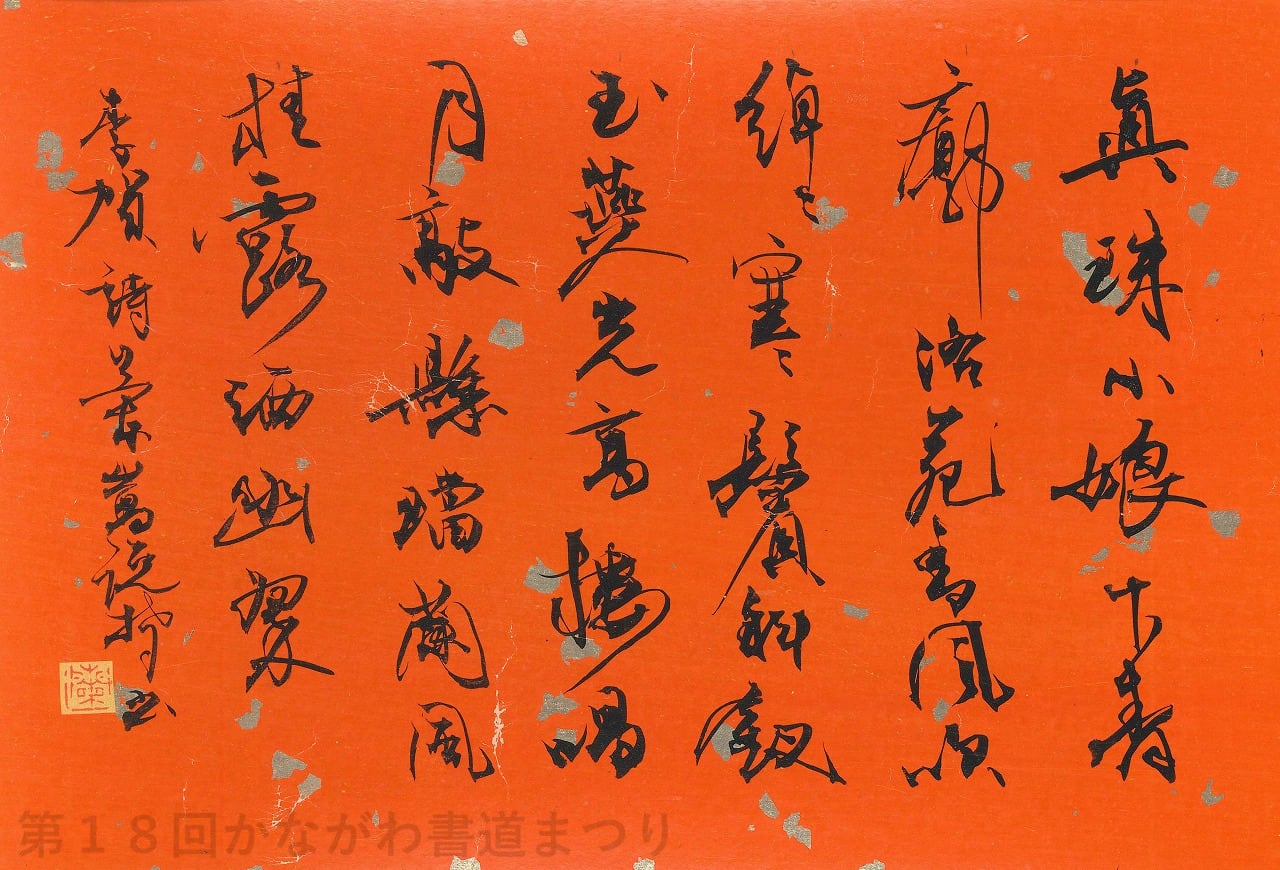 眞珠小娘下青
廓洛苑香風飛
綽々寒鬢斜釵
玉燕光高樓唱
月敲懸璫蘭風
桂露洒幽翠
李賀詩
第１８回かながわ書道まつり